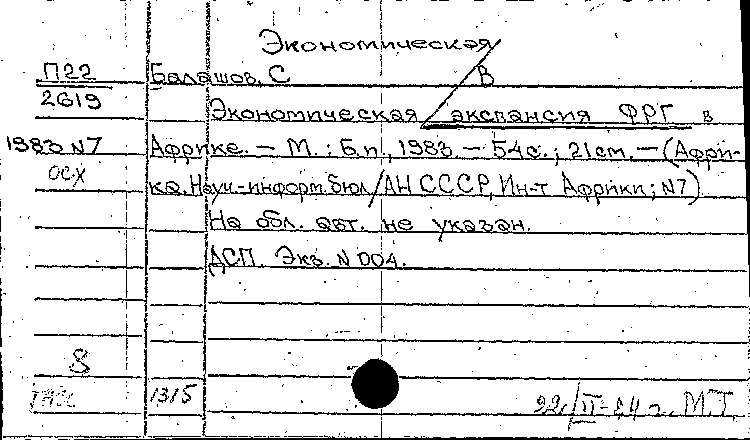 Экономическая
П22 Балашов, С В
2619 Экономическая экспансия ФРГ в
1983 N7 Африке. — М. : Б.и., 1983. — 54с.; 21см. — (Афри-
осх ка. Науч.-информ. бюл./АН СССР, Ин-т Африки; N7)
На обл. авт. не указан.
ДСП. Экз. N 004.
8
1315 22/II-84 г. М.Т.